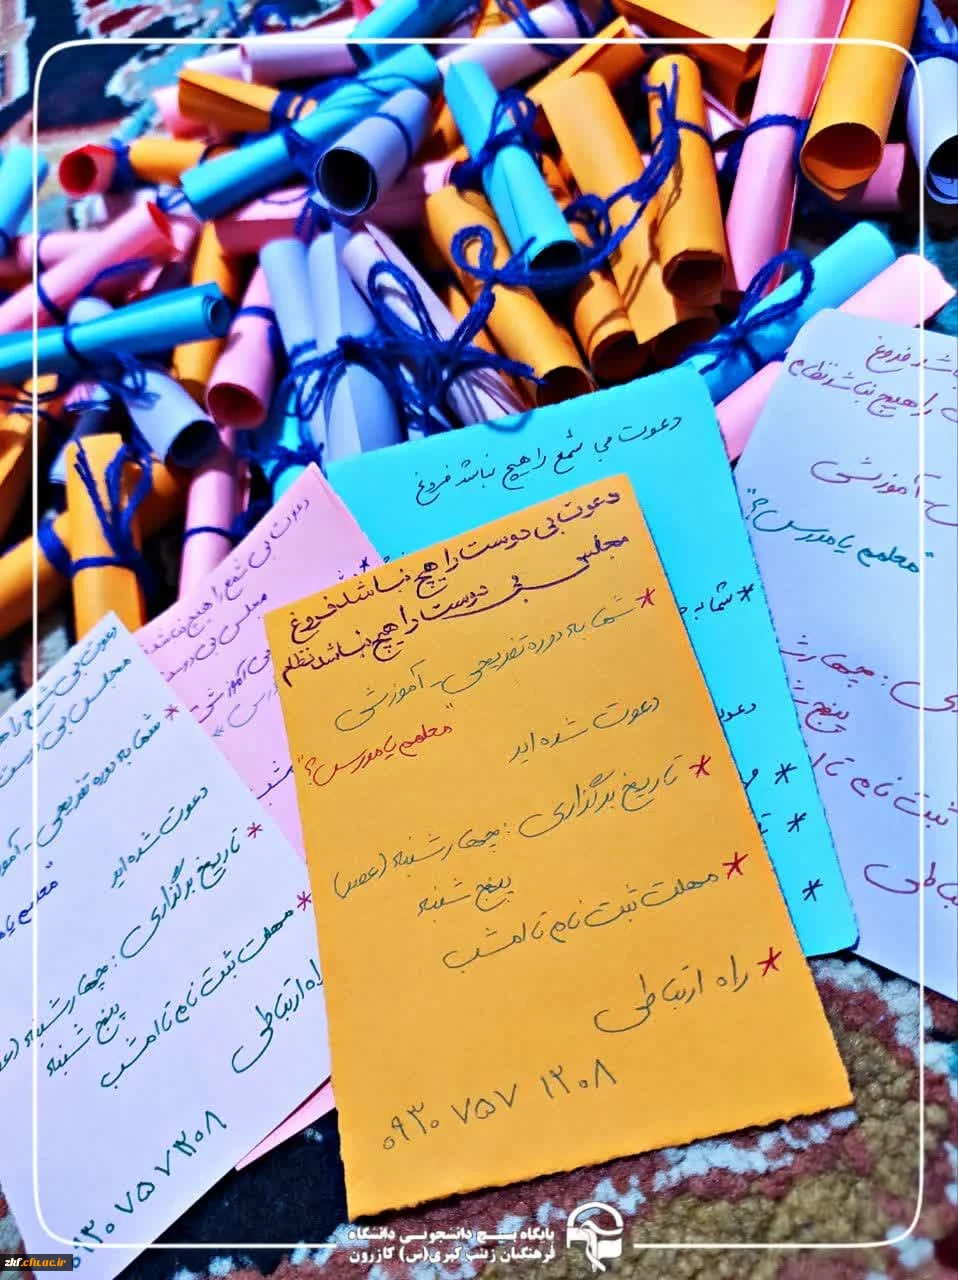 دعوت بی دوست را هیچ نباشد فروغ
مجلس بی دوست را هیچ نباشد نظام
* شما به دوره تفریحی - آموزشی
"معلمم یا مدرس؟"
دعوت شده اید
* تاریخ برگزاری: چهارشنبه (عصر)
پنج شنبه
* مهلت ثبت نام تا امشب
* راه ارتباطی
۰۹۳۰ ۷۵۷ ۱۲۰۸
دعوت بی شمع را هیچ نباشد فروغ
* شما به
دعوت
*
*
*
دعوت بی شمع را هیچ نباشد
مجلس بی دوست
آموزشی
دعوت بی شمع را
مجلس بی دوست
* شما به دوره تفریحی - آمو
"معلمم یا
دعوت شده اید
* تاریخ برگزاری: چهارشنبه
پنج شنبه
* مهلت ثبت نام تا امشب
راه ارتباطی
۹۳۰ ۷۵۷ ۱۲۰۸
باشد فروغ
را هیچ نباشد نظام
- آموزشی
"معلمم یا مدرس؟"
ی: چهارش
پنج ش
ثبت نام تا ا
باطی
پایگاه بسیج دانشجویی دانشگاه
فرهنگیان زینب کبری(س) کازرون
zkf.cfu.ac.ir